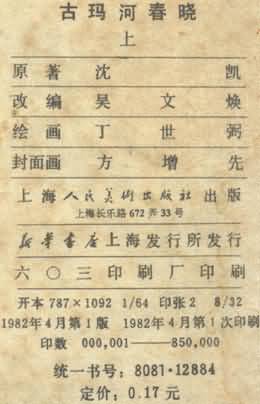 古玛河春晓
上
原著 沈凯
改编 吴文焕
绘画 丁世弼
封面画 方增先
上海人民美术出版社出版
上海长乐路672弄33号
新华书店上海发行所发行
六〇三印刷厂印刷
开本 787×1092 1/64 印张2 8/32
1982年4月第1版 1982年4月第1次印刷
印数 000,001——850,000
统一书号：8081·12884
定价：0.17元